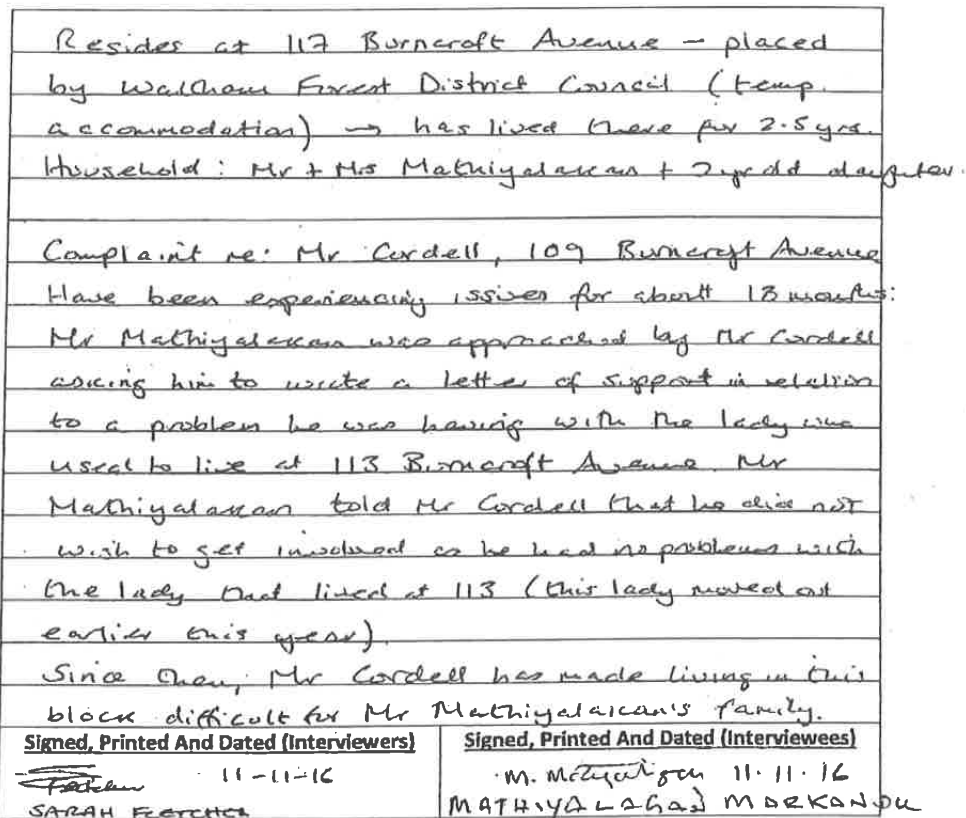 Resides at 117 Burncroft Avenue – placed
by Waltham Forest District Council (temp.
accommodation) → has lived there for 2.5 yrs.
Household: Mr + Mrs Mathiyalakan + 2 yr old daughter.
Complaint re: Mr Cordell, 109 Burncroft Avenue
Have been experiencing issues for about 18 months:
Mr Mathiyalakan was approached by Mr Cordell
asking him to write a letter of support in relation
to a problem he was having with the lady who
used to live at 113 Burncroft Avenue. Mr
Mathiyalakan told Mr Cordell that he did not
wish to get involved as he had no problems with
the lady that lived at 113 (this lady moved out
earlier this year).
Since then, Mr Cordell has made living in this
block difficult for Mr Mathiyalakan's family.
Signed, Printed And Dated (Interviewers)
Signed, Printed And Dated (Interviewees)
Fletcher 11-11-16
SARAH FLETCHER
M. 11.11.16
MATHIYALAGAN MARKANDU